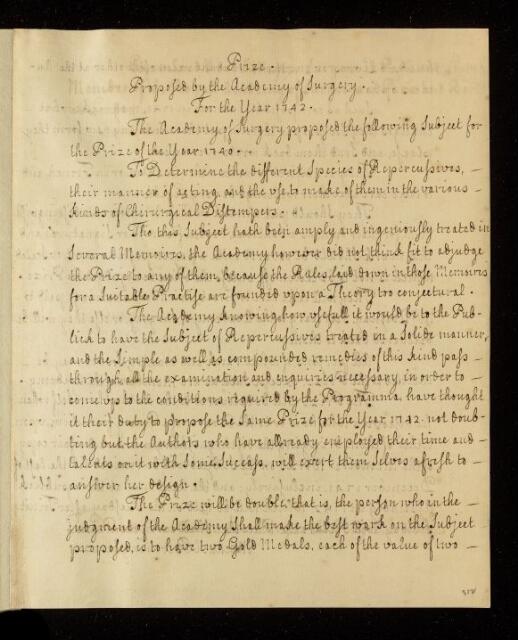 Prize.
Proposed by the Academy of Surgery.
For the Year 1742.
The Academy of Surgery proposed the following Subject for
the Prize of the Year 1740.
To Determine the different Species of Repercussives, —
their manner of acting, and the use to make of them in the various —
kinds of Chirurgical Distempers.
Tho this Subject hath been amply and ingeniously treated in
several Memoires, the Academy however did not think fit to adjudge
the Prize to any of them, because the Rules, laid down in those Memoires
for a Suitable Practise are founded upon a Theory too conjectural.
The Academy knowing, how usefull it would be to the Pub-
lick to have the Subject of Repercussives treated in a Solide manner,
and the Simple as well as compounded remedies of this kind pass —
through all the examination and enquiries necessary, in order to —
come up to the conditions required by the Programma, have thought
it their duty to propose the Same Prize for the Year 1742. not doub-
ting but the Authors who have allready employed their time and —
talents on it with Some Success, will exert them Selves afresh to —
answer her design.
The Prize will be double, that is, the person who in the —
judgment of the Academy Shall make the best work on the Subject
proposed, is to have two Gold Medals, each of the value of two —